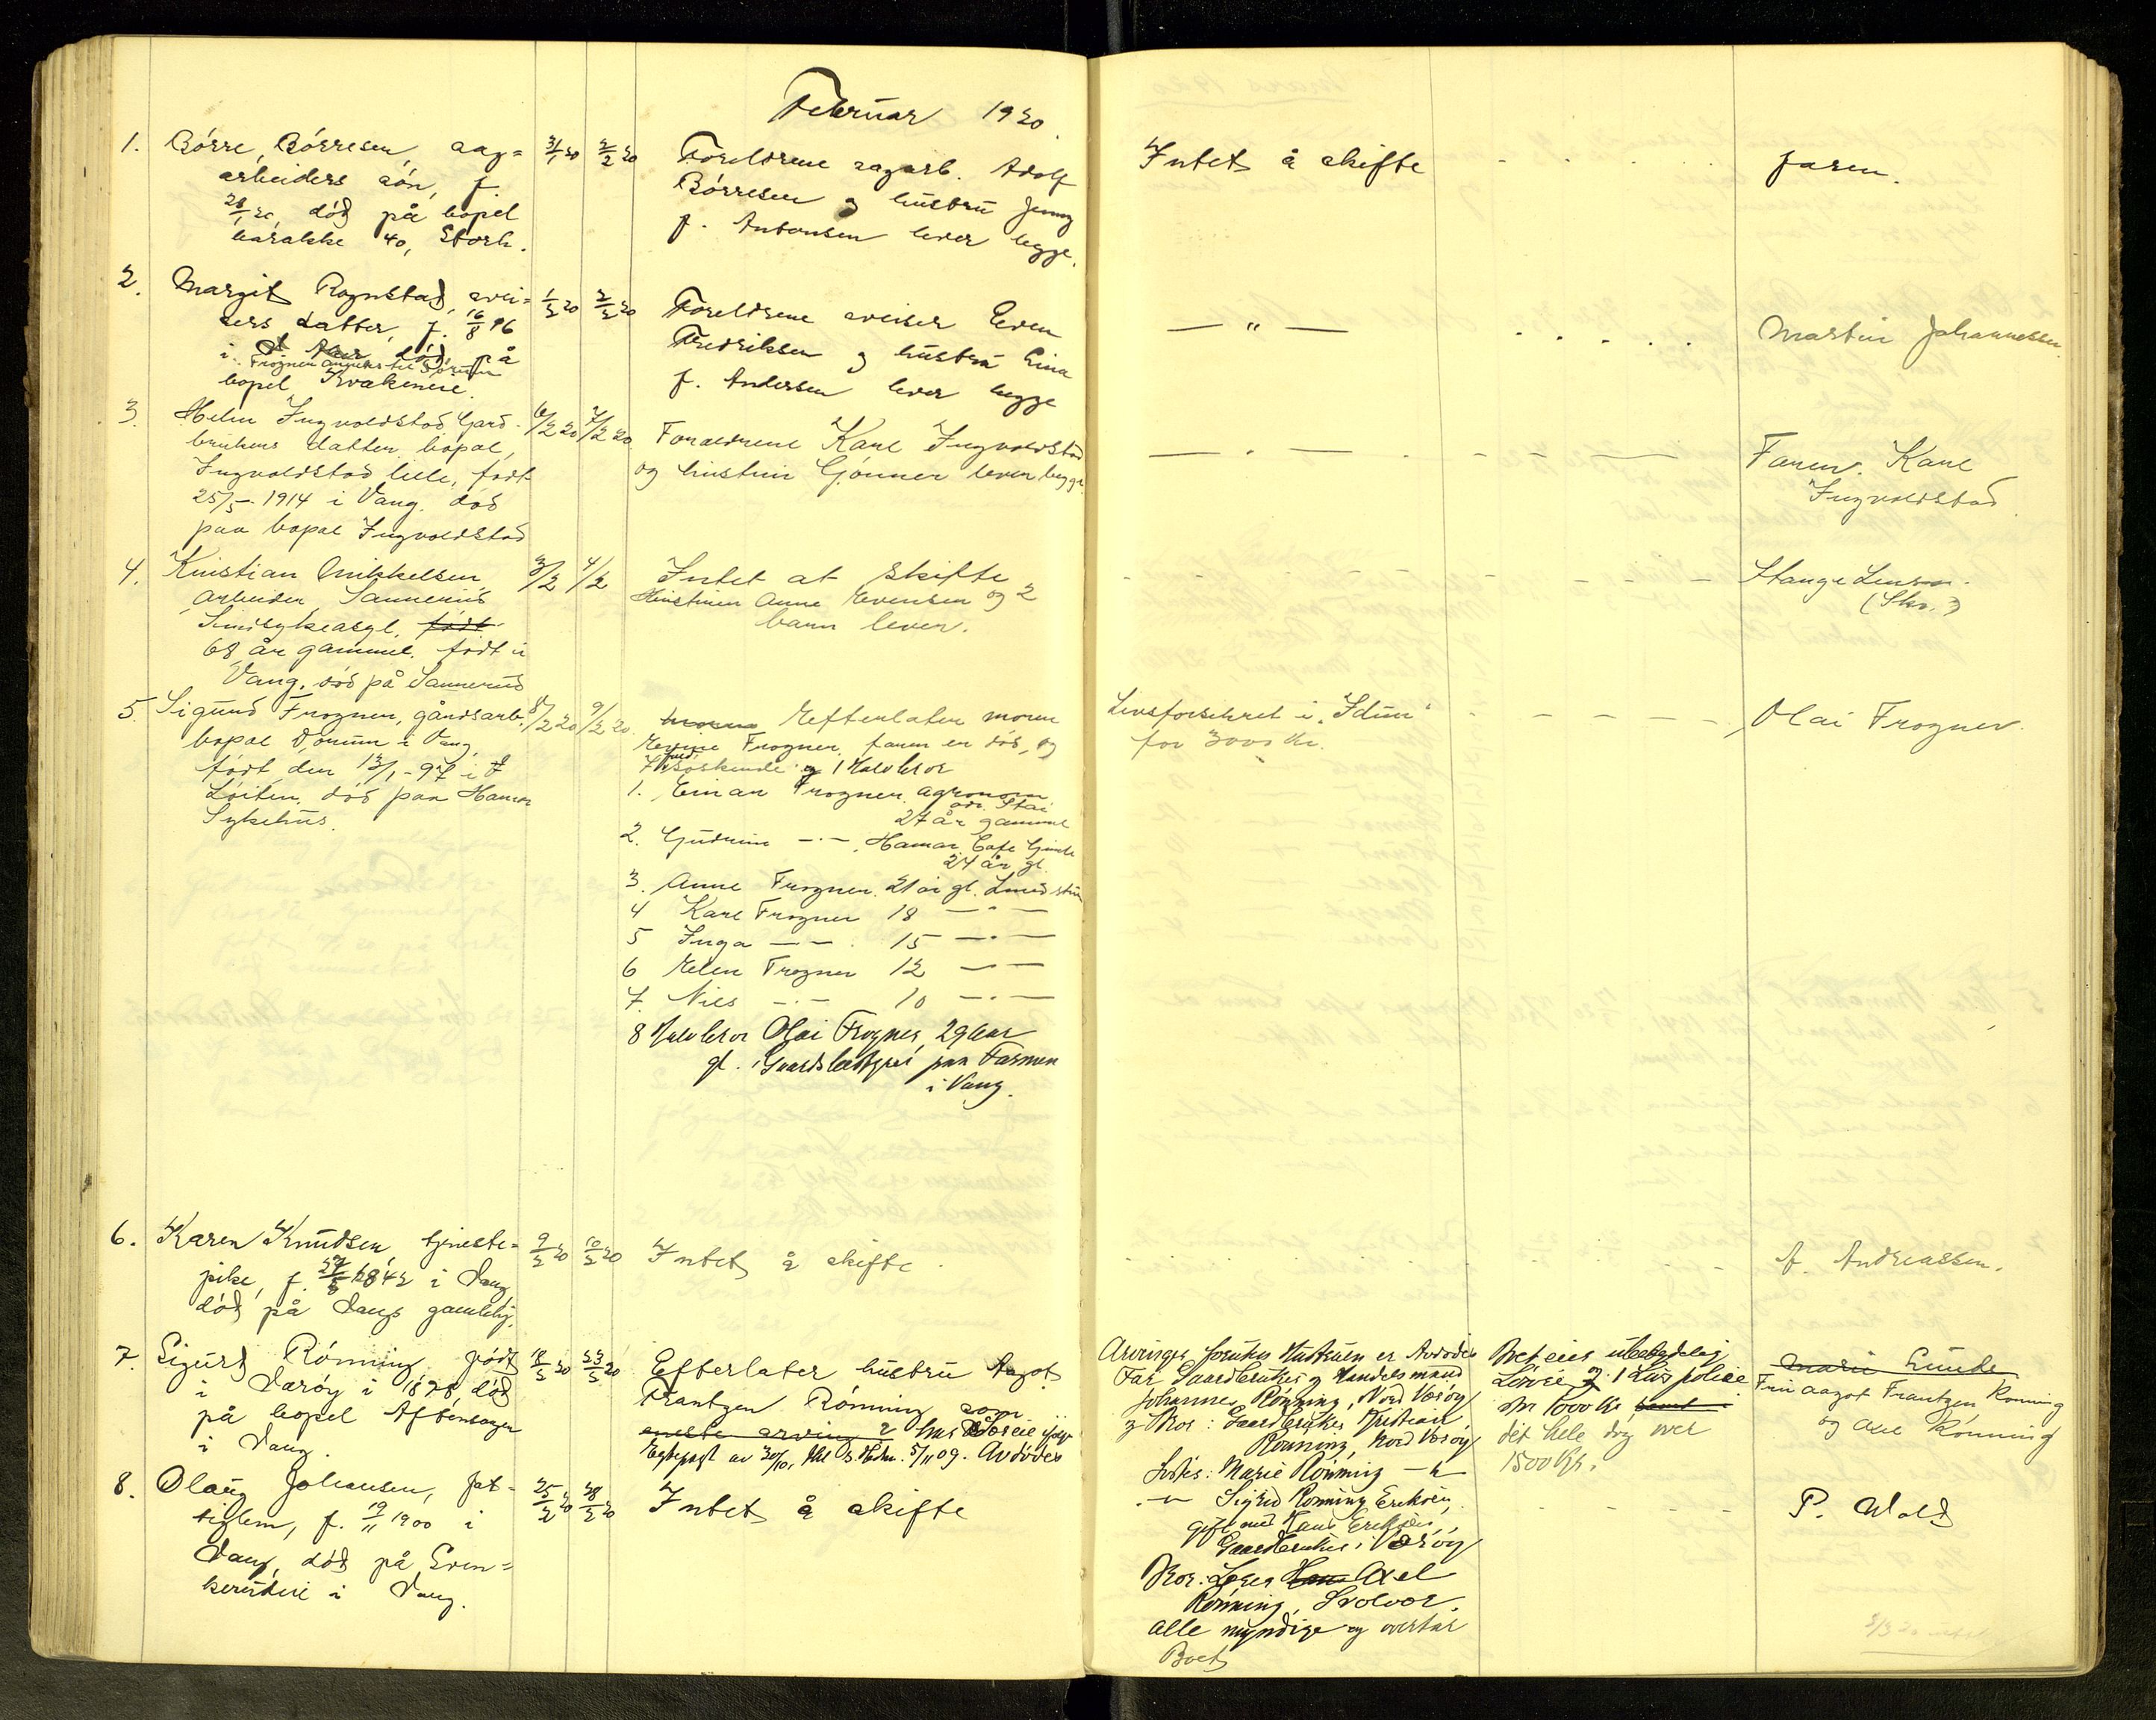 Februar 1920.
1. Börre Börresen, sag=
arbeiders sön, f.
28/1 20, död på bopel
barakke 40, Storh.
31/1 20 2/2 20
Foreldrene sagarb. Adolf
Börresen og hustru Jenny
f. Antonsen lever begge.
Intet å skifte
faren.
2. Margit Rognstad, svei=
sers datter, f. 16/8 96
i död på
Frogner anneks til Sörum
bopel Kvakenene.
1/2 20 2/2 20
Foreldrene sveiser Even
Fredriksen og hustru Lina
f. Andersen lever begge
— " —
Martin Johannessen.
3. Helen Ingvoldstad, Gard-
brukers datter, bopæl,
Ingvoldstad lille, født
25/5 - 1914 i Vang, død
paa bopæl Ingvoldstad
6/2 20 7/2 20
Forældrene Karl Ingvoldstad
og hustru Gjönner lever begge.
— " —
Faren. Karl
Ingvoldstad
4. Kristian Mikkelsen
arbeider, Sanneruds
Sindsykeasyl, født
68 år gammel, født i
Vang, död på Sannerud
3/2 4/2
Intet at skifte
Hustruen Anne Evensen og 2
barn lever.
Stange Lensm.
(Skr.)
5. Sigurd Frogner, gårdsarb.
bopæl Dörum i Vang,
født den 13/1 - 97 i
Löiten, död paa Hamar
Sykehus.
8/2 20 9/2 20
Efterlater moren
Frogner, faren er död, og
7 söskende og 1 Halvbror
1. Einar Frogner, agronom
adr. Stai
27 år gammel
2. Gudrun —"— , Hamar, Cafe
24 år gl.
3. Anne Frogner 21 år gl.
4 Karl Frogner 18 —"—
5 Inga —"— 15 —"—
6 Helen Frogner 12 —"—
7. Nils —"— 10 —"—
8 Halvbror Olai Frogner, 29 aar
gl. Gaardsbestyrer paa Farmen
i Vang.
Livsforsikret i "Idun"
for 3000 kr.
Olai Frogner.
6. Karen Knudsen, tjeneste=
pike, f. 27/8 1842 i Vang,
död på Vangs gamlehj.
9/2 20 10/2 20
Intet å skifte.
A. Andreassen.
7. Sigurd Rönning, född
i Væröy i 1878, död
på bopel Aftensogen
i Vang.
18/2 20 23/2 20
Efterlater hustru Aagot
Frantzen Rönning som
eneste arving
Egtepagt av 30/10, tkl. 5/11 09. Avdödes
Arvinger foruten Hustruen er Avdödes
Far Gaardbruker og Handelsmand
Johannes Rönning, Nord Væröy
og Bror: Gaardbruker Kristian
Rönning, Nord Væröy
Söster: Marie Rönning —"—
—"— Sigrid Rönning Eriksen,
gift med Hans Eriksen,
Gaardbruker i Væröy
Bror: Læger Axel
Rönning, Svolvær.
Alle myndige og overtar
Boet
Bret eies ubetydelig
Lösöre og 1 Livspolise
stor 1000 kr,
det hele dog over
1500 kr.
Marie Lunde
Fru Aagot Frantzen Rönning
og Axel Rönning
8. Olaug Johansen, fat-
tiglem, f. 19/11 1900 i
Vang, död på Sven=
kerudlie i Vang.
25/2 20 28/2 20
Intet å skifte
P. Wold